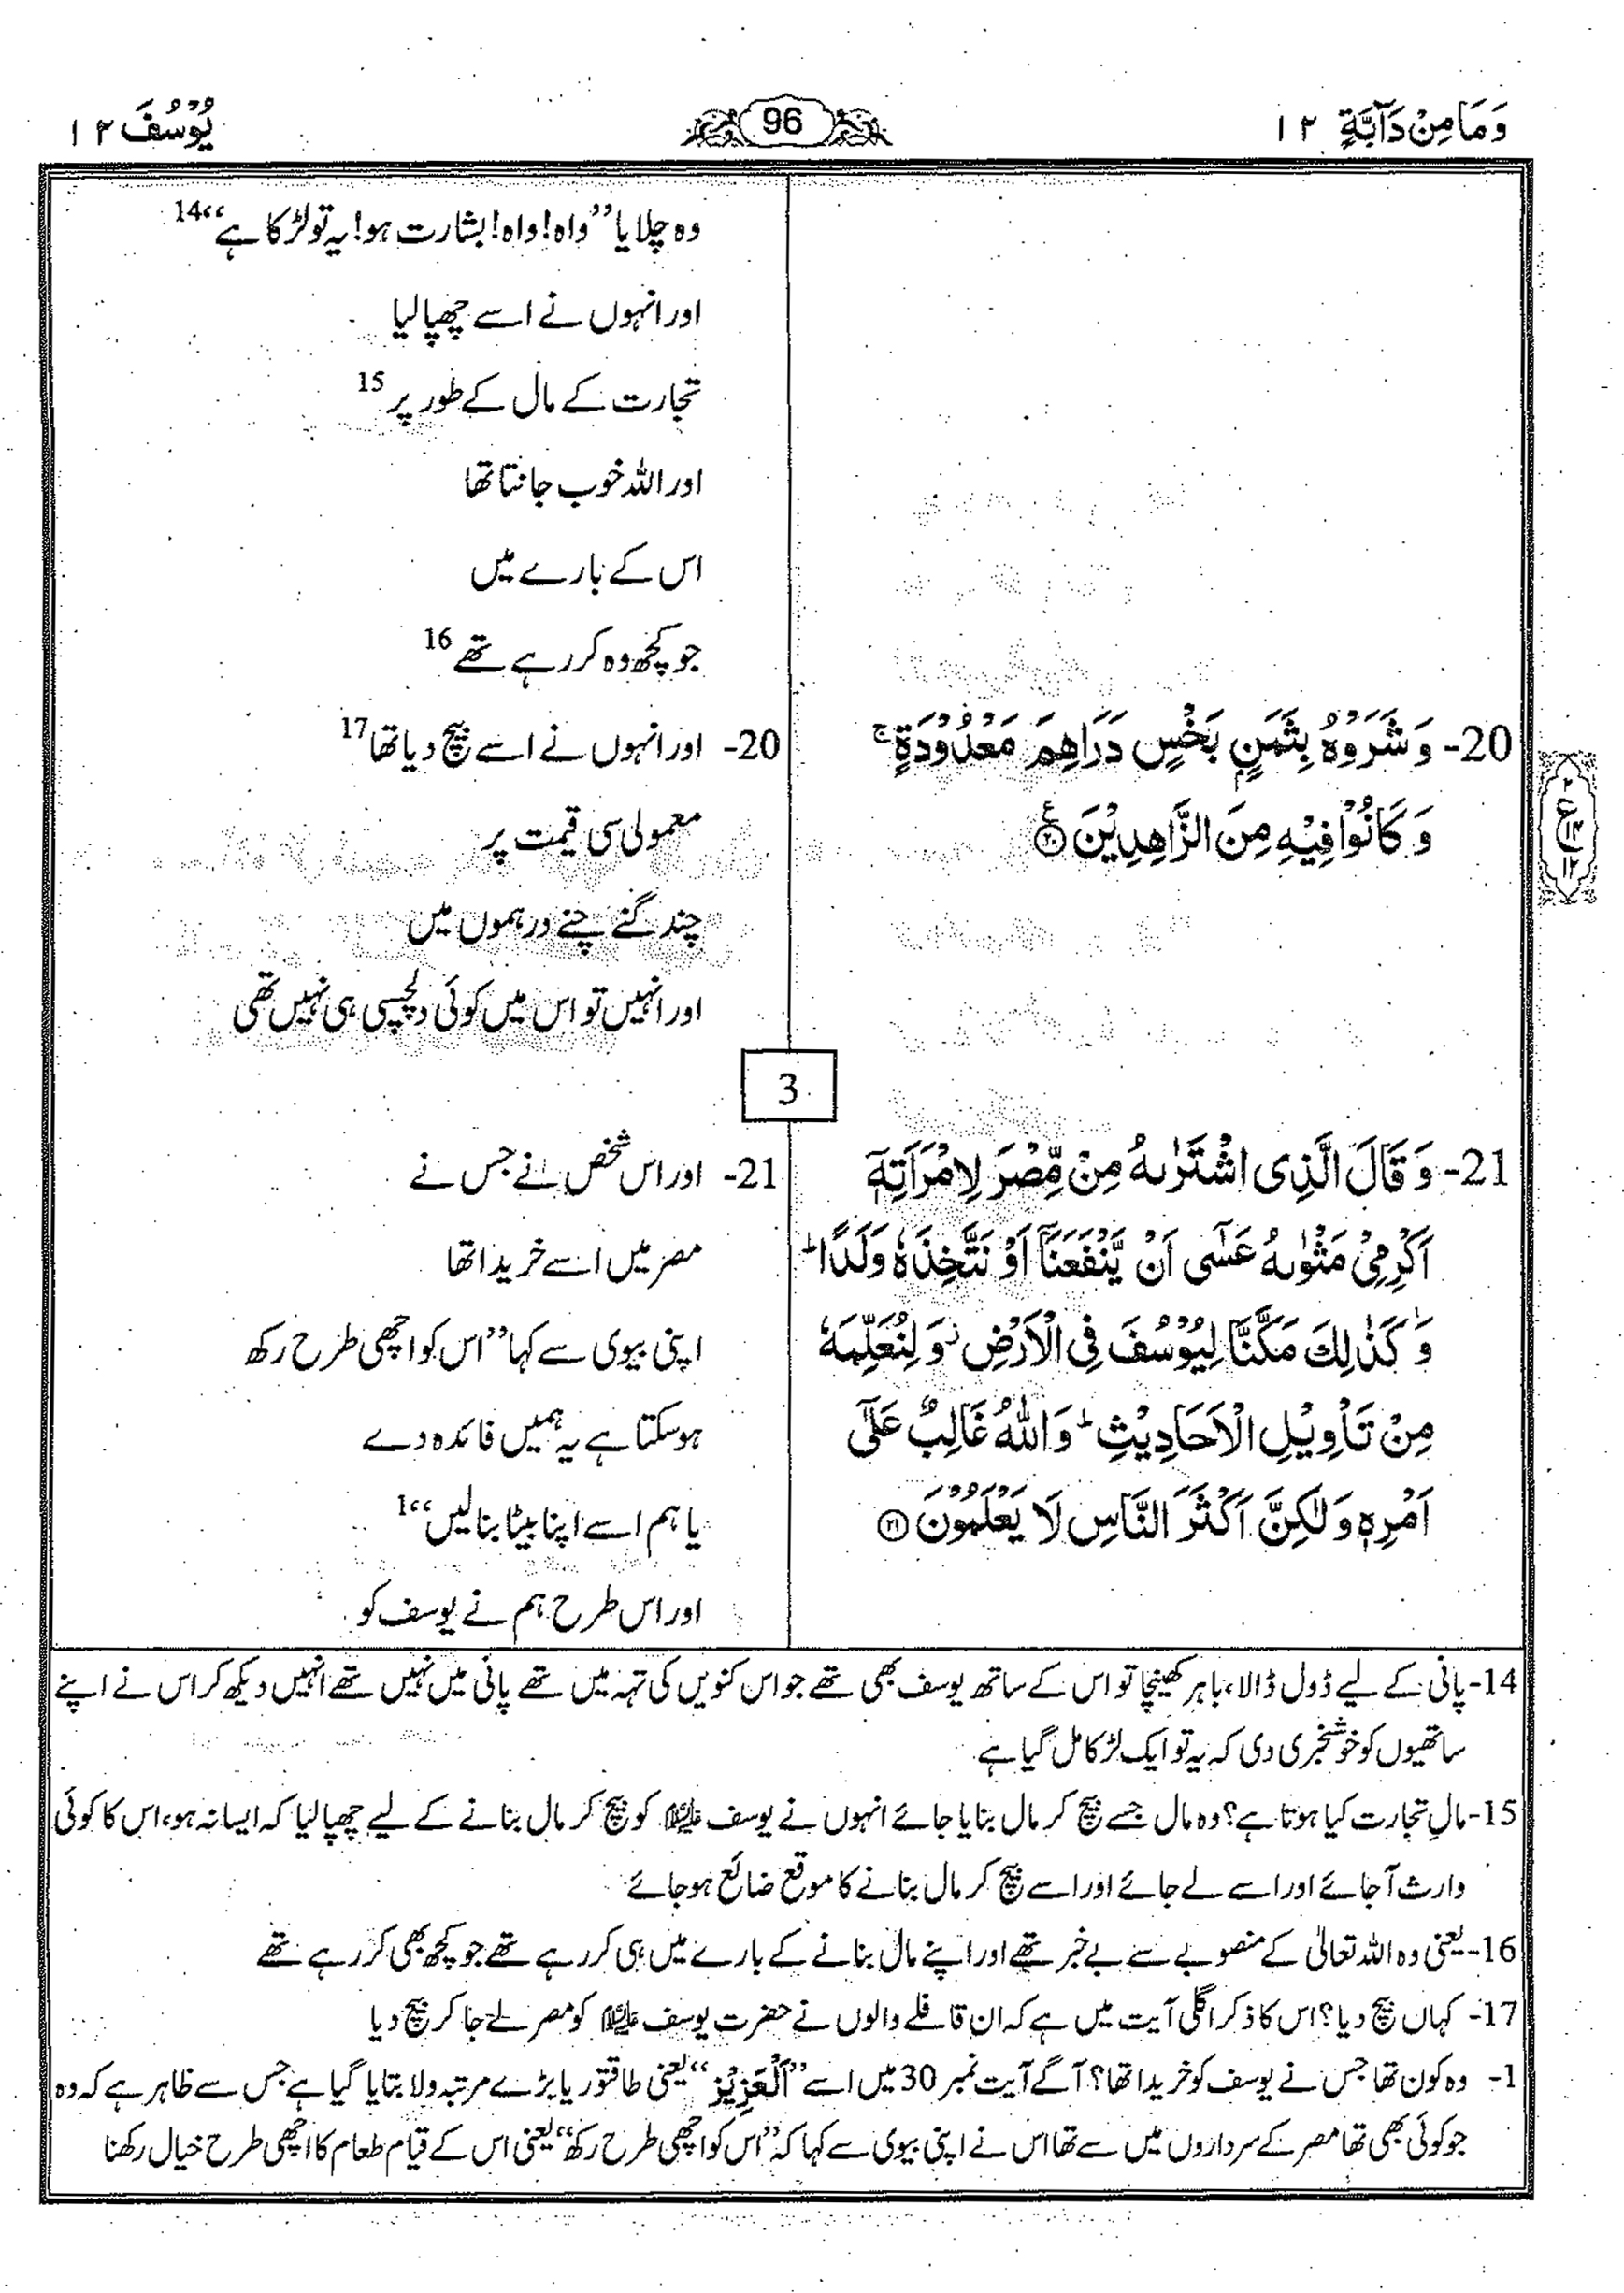 وَمَا مِنْ دَآبَّةٍ ۱۲
96
يُوْسُفَ ۱۲
وہ چلایا ”واہ! واہ! بشارت ہو! یہ تو لڑکا ہے“14
اور انہوں نے اسے چھپا لیا
تجارت کے مال کے طور پر 15
اور اللہ خوب جانتا تھا
اس کے بارے میں
جو کچھ وہ کر رہے تھے 16
20- وَشَرَوْهُ بِثَمَنٍۭ بَخْسٍ دَرَاهِمَ مَعْدُوْدَةٍ ۚ
وَكَانُوْا فِيْهِ مِنَ الزَّاهِدِيْنَ ۟﴿۲۰﴾
ع
۲
۱۲
۱۲
20- اور انہوں نے اسے بیچ دیا تھا 17
معمولی سی قیمت پر
چند گنے چنے درہموں میں
اور انہیں تو اس میں کوئی دلچسپی ہی نہیں تھی
3
21- وَقَالَ الَّذِى اشْتَرٰىهُ مِنْ مِّصْرَ لِامْرَاَتِهٖٓ
اَكْرِمِيْ مَثْوٰىهُ عَسٰٓى اَنْ يَّنْفَعَنَآ اَوْ نَتَّخِذَهٗ وَلَدًا ؕ
وَكَذٰلِكَ مَكَّنَّا لِيُوْسُفَ فِى الْاَرْضِ ۫ وَلِنُعَلِّمَهٗ
مِنْ تَاْوِيْلِ الْاَحَادِيْثِ ؕ وَاللّٰهُ غَالِبٌ عَلٰٓى
اَمْرِهٖ وَلٰكِنَّ اَكْثَرَ النَّاسِ لَا يَعْلَمُوْنَ ﴿۲۱﴾
21- اور اس شخص نے جس نے
مصر میں اسے خریدا تھا
اپنی بیوی سے کہا ”اس کو اچھی طرح رکھ
ہو سکتا ہے یہ ہمیں فائدہ دے
یا ہم اسے اپنا بیٹا بنا لیں“1
اور اس طرح ہم نے یوسف کو
14- پانی کے لیے ڈول ڈالا، باہر کھینچا تو اس کے ساتھ یوسف بھی تھے جو اس کنویں کی تہہ میں تھے پانی میں نہیں تھے انہیں دیکھ کر اس نے اپنے
ساتھیوں کو خوشخبری دی کہ یہ تو ایک لڑکا مل گیا ہے
15- مالِ تجارت کیا ہوتا ہے؟ وہ مال جسے بیچ کر مال بنایا جائے انہوں نے یوسف علیہ السلام کو بیچ کر مال بنانے کے لیے چھپا لیا کہ ایسا نہ ہو، اس کا کوئی
وارث آ جائے اور اسے لے جائے اور اسے بیچ کر مال بنانے کا موقع ضائع ہو جائے
16- یعنی وہ اللہ تعالیٰ کے منصوبے سے بے خبر تھے اور اپنے مال بنانے کے بارے میں ہی کر رہے تھے جو کچھ بھی کر رہے تھے
17- کہاں بیچ دیا؟ اس کا ذکر اگلی آیت میں ہے کہ ان قافلے والوں نے حضرت یوسف علیہ السلام کو مصر لے جا کر بیچ دیا
1- وہ کون تھا جس نے یوسف کو خریدا تھا؟ آگے آیت نمبر 30 میں اسے ”اَلْعَزِيْزُ“ یعنی طاقتور یا بڑے مرتبہ ولا بتایا گیا ہے جس سے ظاہر ہے کہ وہ
جو کوئی بھی تھا مصر کے سرداروں میں سے تھا اس نے اپنی بیوی سے کہا کہ ”اس کو اچھی طرح رکھ“ یعنی اس کے قیام طعام کا اچھی طرح خیال رکھنا